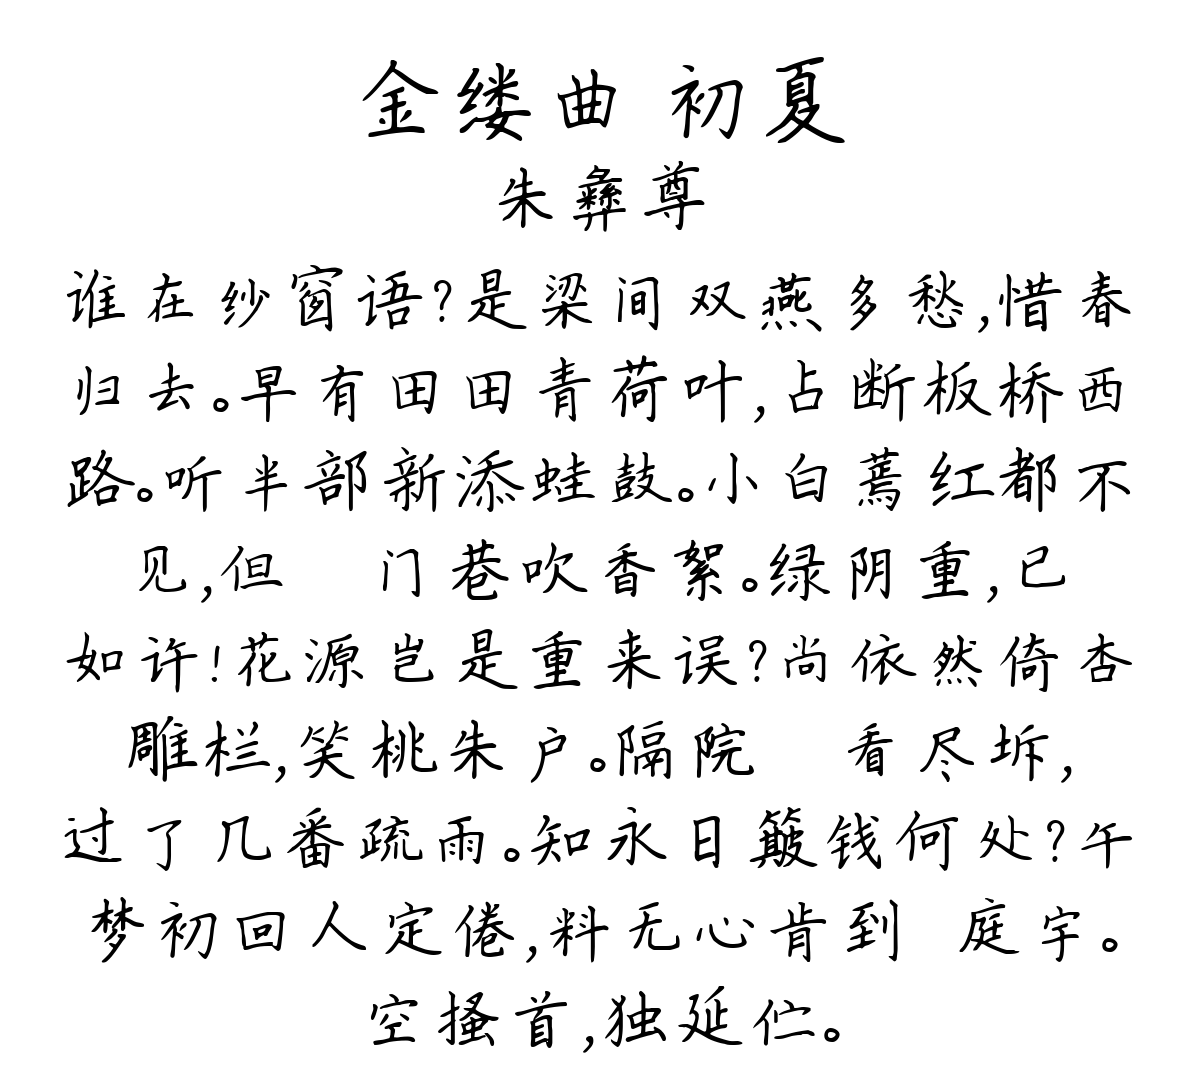 金缕曲 初夏
朱彝尊
谁在纱窗语?是梁间双燕多愁,惜春
归去。早有田田青荷叶,占断板桥西
路。听半部新添蛙鼓。小白蔫红都不
见,但 门巷吹香絮。绿阴重,已
如许!花源岂是重来误?尚依然倚杏
雕栏,笑桃朱户。隔院 看尽坼,
过了几番疏雨。知永日簸钱何处?午
梦初回人定倦,料无心肯到 庭宇。
空搔首,独延伫。